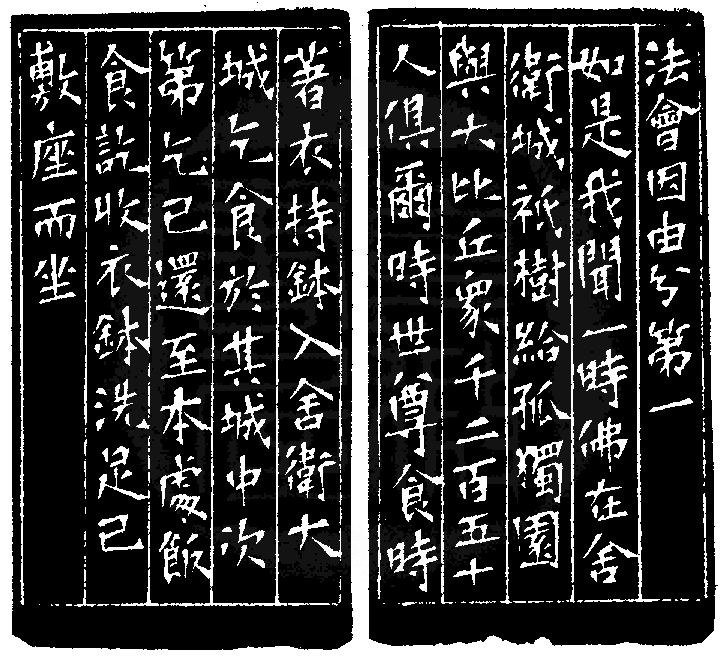 法會因由分第一
如是我聞一時佛在舍
衛城祇樹給孤獨園
與大比丘衆千二百五十
人俱爾時世尊食時
著衣持鉢入舍衛大
城乞食於其城中次
第乞已還至本處飯
食訖收衣鉢洗足已
敷座而坐